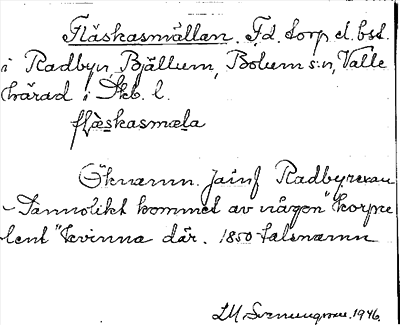 Fläskasmällan. Fd. torp el. bst.
i Radbyn, Bjällum, Bolum s:n, Valle
härad i Skb. l.
flæskasmæla
Öknamn. Jämf Radbyrexan
- Sannolikt kommet av någon "korpu
lent" kvinna där. 1850-talsnamn
LM Svennungsson. 1946.